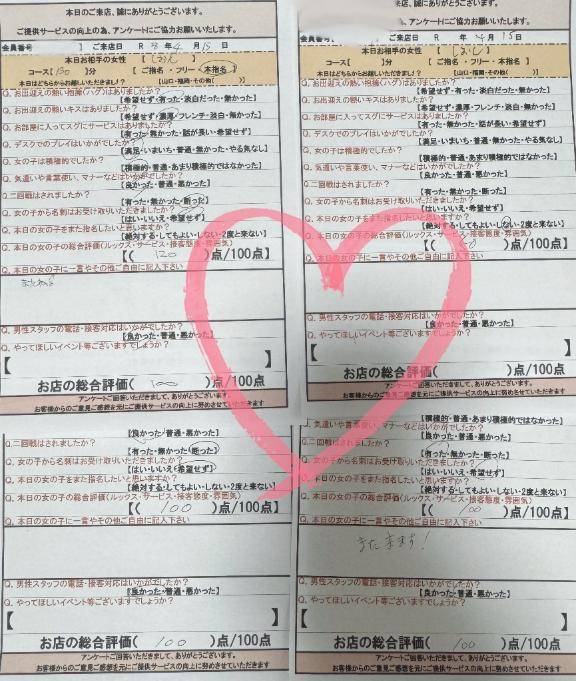 本日のご来店、誠にありがとうございます。
ご提供サービスの向上の為、アンケートにご協力お願いします。
会員番号 ご来店日 R 3年 4月 15日
本日お相手の女性【
コース【100 】分 【ご指名・フリー・本指名】
本日はどちらからお越しいただきまし!? 【山口・福岡・その他( )】
Q. お出迎えの熱い抱擁(ハグ)はありましたか?
【希望せず・有った・淡白だった・無かった】
Q. お出迎えの熱いキスはありましたか?
【希望せず・濃厚・フレンチ・淡白・無かった】
Q. お部屋に入ってスグにサービスはありましたか?
【有った・無かった・話が長い・希望せず】
Q. デスクでのプレイはいかがでしたか?
【満足・いまいち・普通・無かった・やる気なし】
Q. 女の子は積極的でしたか?
【積極的・普通・あまり積極的ではなかった】
Q. 気遣いや言葉使い、マナーなどはいかがでしたか?
【良かった・普通・悪かった】
Q.二回戦はされましたか?
【有った・無かった・断った】
Q. 女の子から名刺はお受け取りいただきましたか?
【はい・いいえ・希望せず】
Q. 本日の女の子をまた指名したいと思いますか?
【絶対する・してもよい・しない・2度と来ない】
Q. 本日の女の子の総合評価(ルックス・サービス・接客態度・雰囲気)
【( 120 )点/100点
Q. 本日の女の子に一言やその他ご自由に記入下さい
Q. 男性スタッフの電話・接客対応はいかがでしたか?
【良かった・普通・悪かった】
Q. やってほしいイベント等ございますでしょうか?
【 】
お店の総合評価( 100 )点/100点
アンケートご回答いただきまして、ありがとうございます。
お客様からのご意見ご感想を元にご提供サービスの向上に努めさせていただきます
ご提供サービスの向上の為、アンケートにご協力お願いします。
ご来店日 R 年 4月 15日
本日お相手の女性【
コース【 】分 【ご指名・フリー・本指名】
本日はどちらからお越しいただきまし!? 【山口・福岡・その他( )】
Q. お出迎えの熱い抱擁(ハグ)はありましたか?
【希望せず・有った・淡白だった・無かった】
Q. お出迎えの熱いキスはありましたか?
【希望せず・濃厚・フレンチ・淡白・無かった】
Q. お部屋に入ってスグにサービスはありましたか?
【有った・無かった・話が長い・希望せず】
Q. デスクでのプレイはいかがでしたか?
【満足・いまいち・普通・無かった・やる気なし】
Q. 女の子は積極的でしたか?
【積極的・普通・あまり積極的ではなかった】
Q. 気遣いや言葉使い、マナーなどはいかがでしたか?
【良かった・普通・悪かった】
Q.二回戦はされましたか?
【有った・無かった・断った】
Q. 女の子から名刺はお受け取りいただきましたか?
【はい・いいえ・希望せず】
Q. 本日の女の子をまた指名したいと思いますか?
【絶対する・してもよい・しない・2度と来ない】
Q. 本日の女の子の総合評価(ルックス・サービス・接客態度・雰囲気)
【( )点/100点
Q. 本日の女の子に一言やその他ご自由に記入下さい
Q. 男性スタッフの電話・接客対応はいかがでしたか?
【良かった・普通・悪かった】
Q. やってほしいイベント等ございますでしょうか?
【 】
お店の総合評価( )点/100点
アンケートご回答いただきまして、ありがとうございます。
お客様からのご意見ご感想を元にご提供サービスの向上に努めさせていただきます
【良かった・普通・悪かった】
Q.二回戦はされましたか?
【有った・無かった・断った】
Q. 女の子から名刺はお受け取りいただきましたか?
【はい・いいえ・希望せず】
Q. 本日の女の子をまた指名したいと思いますか?
【絶対する・してもよい・しない・2度と来ない】
Q. 本日の女の子の総合評価(ルックス・サービス・接客態度・雰囲気)
【( 100 )点/100点
Q. 本日の女の子に一言やその他ご自由に記入下さい
Q. 男性スタッフの電話・接客対応はいかがでしたか?
【良かった・普通・悪かった】
Q. やってほしいイベント等ございますでしょうか?
【 】
お店の総合評価( 100 )点/100点
アンケートご回答いただきまして、ありがとうございます。
お客様からのご意見ご感想を元にご提供サービスの向上に努めさせていただきます
【積極的・普通・あまり積極的ではなかった】
気遣いや言葉使い、マナーなどはいかがでしたか?
【良かった・普通・悪かった】
Q.二回戦はされましたか?
【有った・無かった・断った】
Q. 女の子から名刺はお受け取りいただきましたか?
【はい・いいえ・希望せず】
Q. 本日の女の子をまた指名したいと思いますか?
【絶対する・してもよい・しない・2度と来ない】
Q. 本日の女の子の総合評価(ルックス・サービス・接客態度・雰囲気)
【( 100 )点/100点
Q. 本日の女の子に一言やその他ご自由に記入下さい
また来ます!
Q. 男性スタッフの電話・接客対応はいかがでしたか?
【良かった・普通・悪かった】
Q. やってほしいイベント等ございますでしょうか?
【 】
お店の総合評価( 100 )点/100点
アンケートご回答いただきまして、ありがとうございます。
お客様からのご意見ご感想を元にご提供サービスの向上に努めさせていただきます